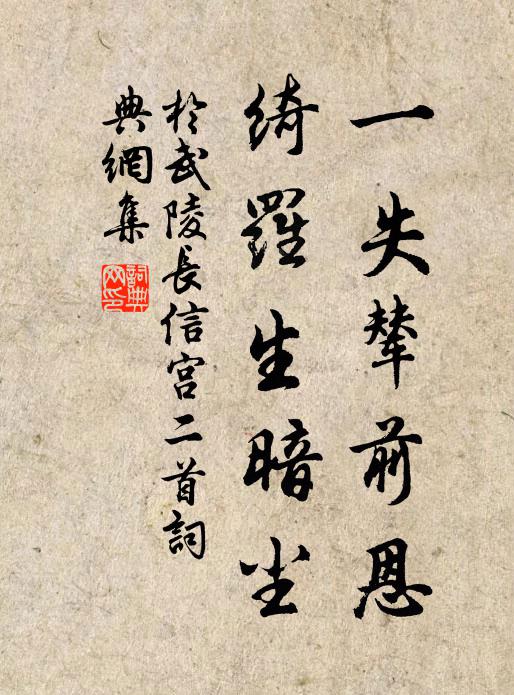 一失辇前恩
绮罗生暗尘
于武陵长信宫二首词
典网集
词典网印